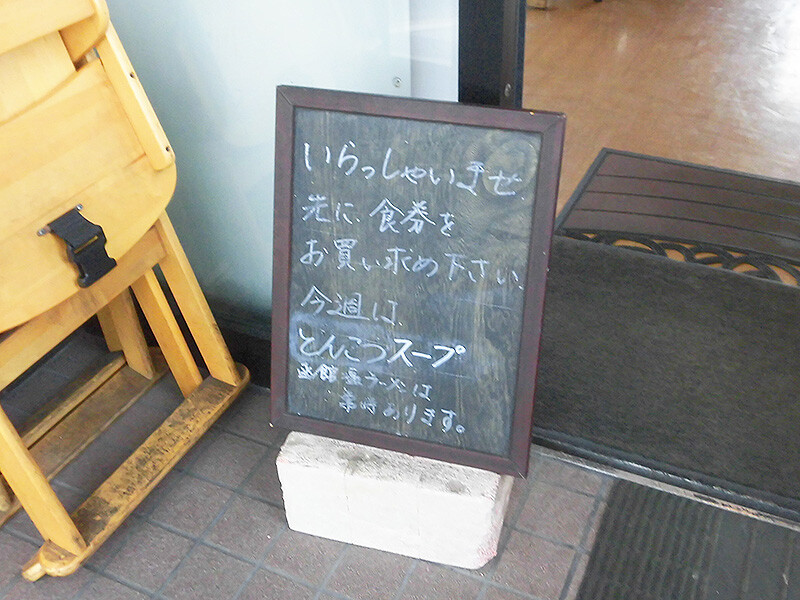 いらっしゃいませ.
先に、食券を
お買い求め下さい.
今週は、
とんこつスープ
函館塩ラーメンは
常時あります。